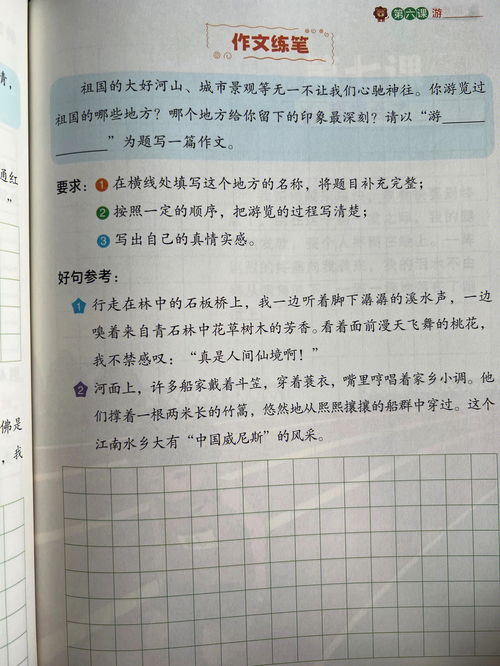 第六课 游
作文练笔
祖国的大好河山、城市景观等无一不让我们心驰神往。你游览过
祖国的哪些地方？哪个地方给你留下的印象最深刻？请以“游______
______”为题写一篇作文。
要求：1 在横线处填写这个地方的名称，将题目补充完整；
2 按照一定的顺序，把游览的过程写清楚；
3 写出自己的真情实感。
好句参考：
1 行走在林中的石板桥上，我一边听着脚下潺潺的溪水声，一边
嗅着来自青石林中花草树木的芳香。看着面前漫天飞舞的桃花，
我不禁感叹：“真是人间仙境啊！”
2 河面上，许多船家戴着斗笠，穿着蓑衣，嘴里哼唱着家乡小调。他
们撑着一根两米长的竹篙，悠然地从熙熙攘攘的船群中穿过。这个
江南水乡大有“中国威尼斯”的风采。
青，
通红
”
佛是
，我